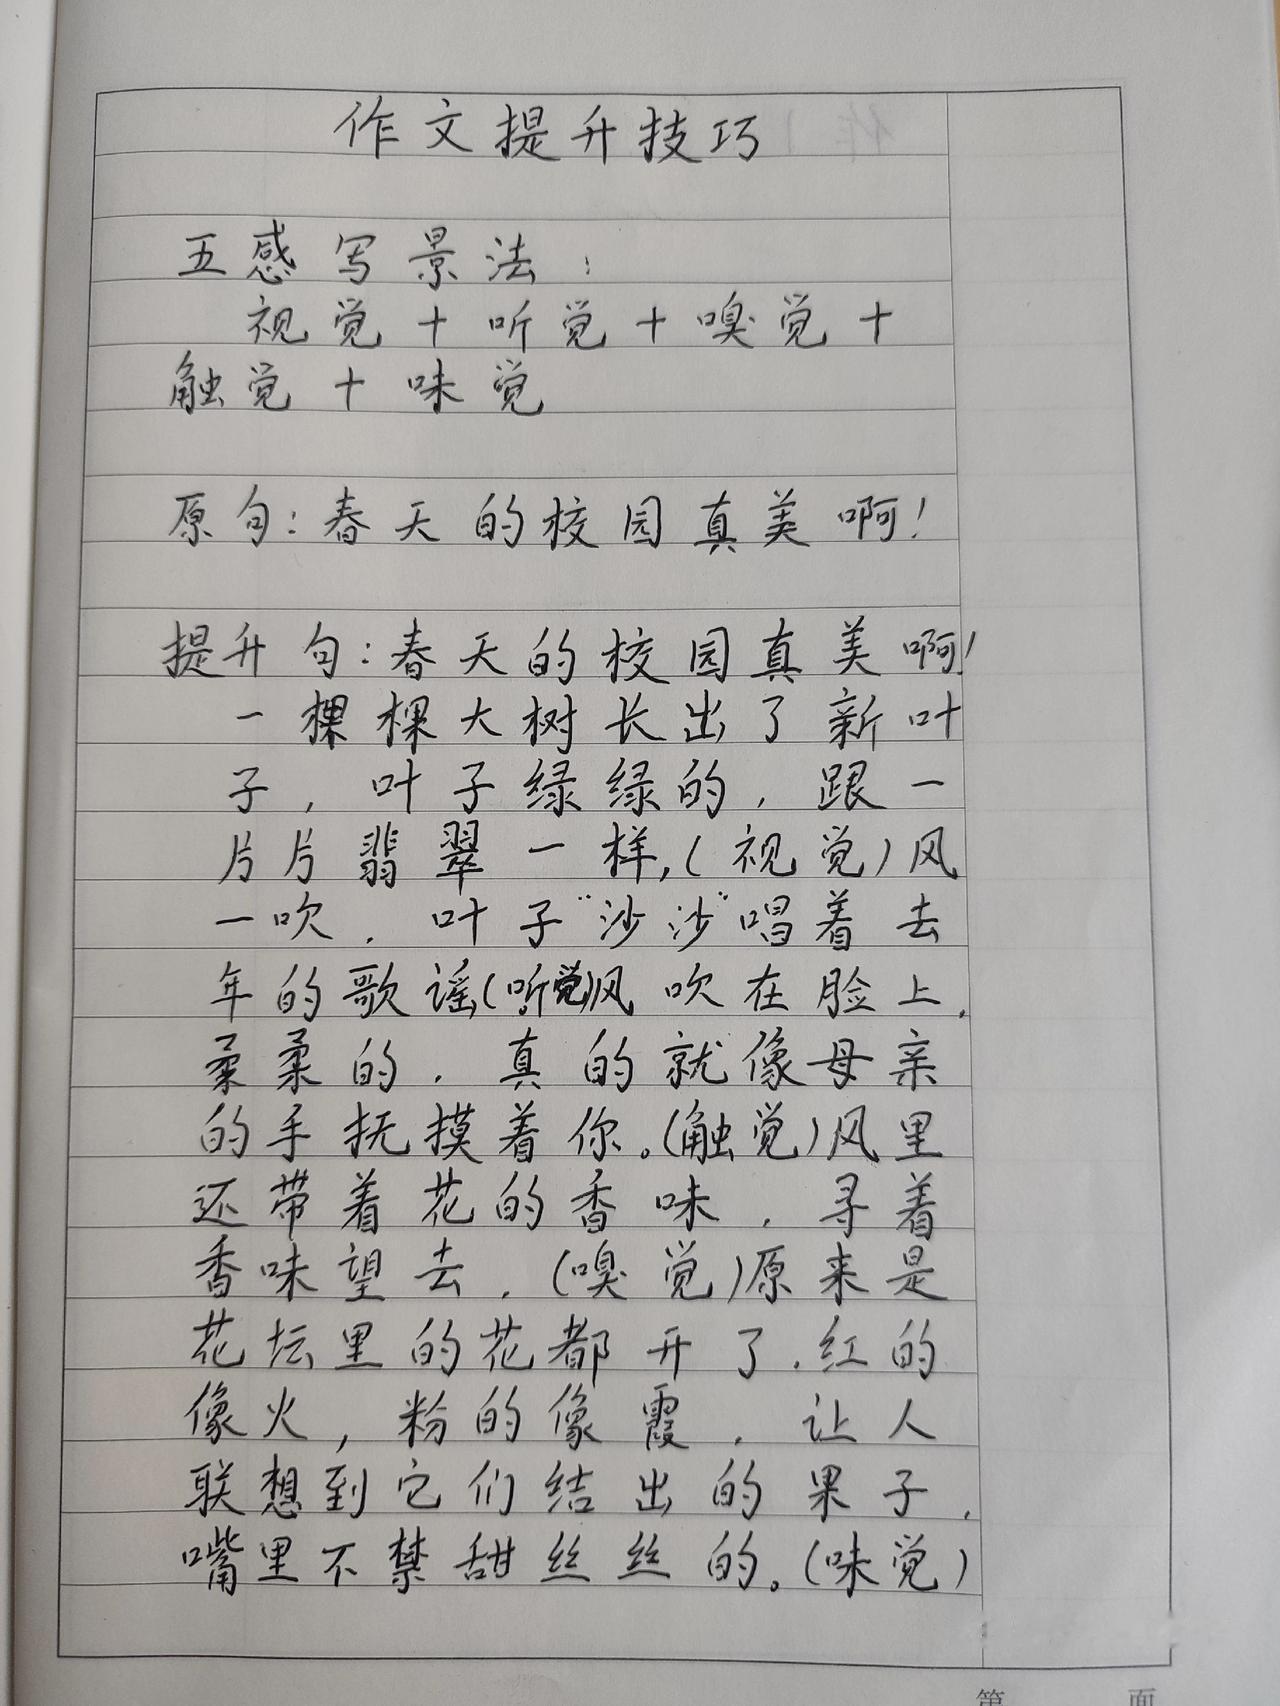 作文提升技巧
五感写景法：
视觉+听觉+嗅觉+
触觉+味觉
原句：春天的校园真美啊！
提升句：春天的校园真美啊！
一棵棵大树长出了新叶
子，叶子绿绿的，跟一
片片翡翠一样，（视觉）风
一吹，叶子“沙沙”唱着去
年的歌谣（听觉）风吹在脸上，
柔柔的，真的就像母亲
的手抚摸着你。（触觉）风里
还带着花的香味，寻着
香味望去，（嗅觉）原来是
花坛里的花都开了，红的
像火，粉的像霞，让人
联想到它们结出的果子，
嘴里不禁甜丝丝的。（味觉）
第 面